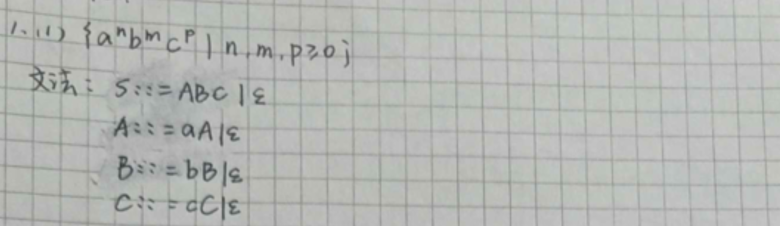 1. (1) {aⁿbᵐcᵖ | n, m, p≥0}
文法: S::=ABC|ε
A::=aA|ε
B::=bB|ε
C::=cC|ε